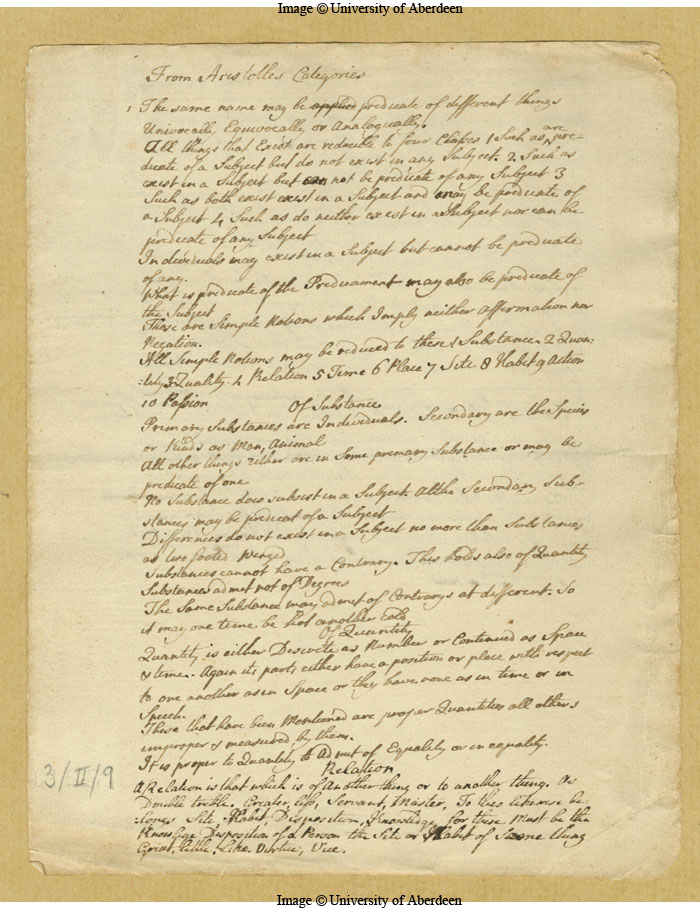 Image © University of Aberdeen
From Aristotles Categories
1 The same name may be applied predicate of different things
Univocally Equivocally or Analogically.
All things that Exist are reducible to four Classes 1 Such as are pre-
dicate of a Subject but do not exist in any Subject. 2 Such as
exist in a Subject but can not be predicate of any Subject 3
Such as both exist exist in a Subject and may be predicate of
a Subject 4 Such as do neither exist in a Subject nor can be
predicate of any Subject
Individuals may exist in a Subject but cannot be predicate
of any.
What is predicate of the Predicament may also be predicate of
the Subject
These are Simple Notions which Imply neither affirmation nor
Negation.
All Simple Notions may be reduced to these 1 Substance. 2 Quan:
:tity 3 Quality 4 Relation 5 Time 6 Place 7 Site 8 Habit 9 Action
10 Passion
Of Substance
Primary Substances are Individuals. Secondary are the Species
or Kinds as Man, Animal
All other things either are in Some primary Substance or may be
predicate of one
No Substance does subsist in a Subject. All the Secondary Sub-
stances may be predicat of a Subject
Differences do not exist in a Subject no more than Substances
as two footed Winged
Substances cannot have a Contrary. This holds also of Quantity
Substances admit not of Degrees
The Same Substance may admit of Contrarys at different. So
it may one time be hot another cold
Of Quantity
Quantity is either Discrete as Number or Continued as Space
& time. Again its parts either have a position or place with respect
to one another as in Space or they have none as in time or in
Speech.
These that have been Mentioned are proper Quantities all others
improper & measured by them.
It is proper to Quantity to Admit of Equality or inequality.
Relation
A Relation is that which is of Another thing or to another thing. As
Double treble. Greater, less, Servant, Master, To this likewise be
:longs Site, Habit, Disposition, Knowledge for these Must be the
Knowledge Disposition of a Person the Site or Habit of Some thing
Great, little, Like Virtue, Vice.
3/II/9
Image © University of Aberdeen